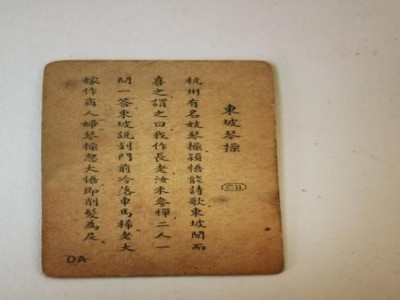 東坡琴操
C.H.
杭州有名妓琴操穎悟能詩歌東坡聞而
喜之謂之曰我作長老汝末參禪二人一
問一答東坡説到門前冷落車馬稀老大
嫁作商人婦琴操忽大悟即削髮為尼
DA